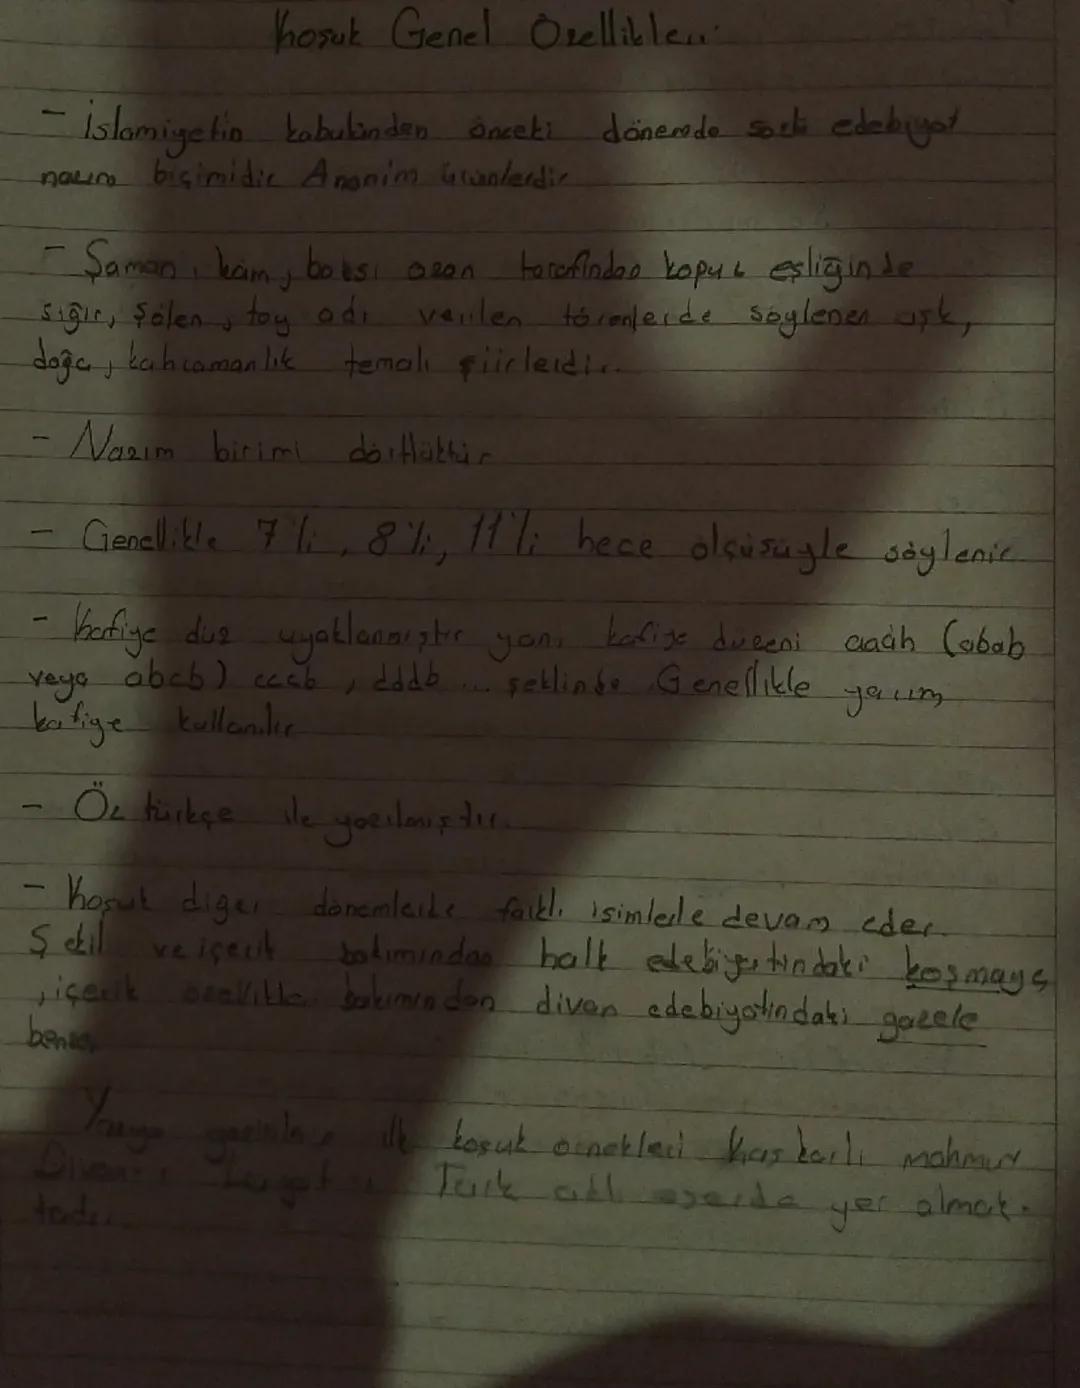 Koşuk Genel Özellikleri:
- İslamiyetin kabulünden önceki dönemde sözlü edebiyat
nazım biçimidir Anonim ürünlerdir
- Şaman, kam, baksı ozan tarafından kopuz eşliğinde
sığır, şölen, toy adı verilen törenlerde söylenen aşk,
doğa, kahramanlık temalı şiirlerdir.
- Nazım birimi dörtlüktür
- Genellikle 7'li, 8'li, 11'li hece ölçüsüyle söylenir
- Kafiye düz uyaklanmıştır yani kafiye düzeni aaab (abab
veya abcb) cccb, dddb ... şeklinde. Genellikle yarım
kafiye kullanılır
- Öz türkçe ile yazılmıştır.
- Koşuk diğer dönemlerde farklı isimlerle devam eder.
Şekil ve içerik bakımından halk edebiyatındaki koşmaya
, içerik özellikle bakımından divan edebiyatındaki gazele
benzer
Yazıya geçirilen ilk koşuk örnekleri Kaşkarlı mahmut
Divan-ı Lügat Türk adlı eserde yer almak-
tadır.